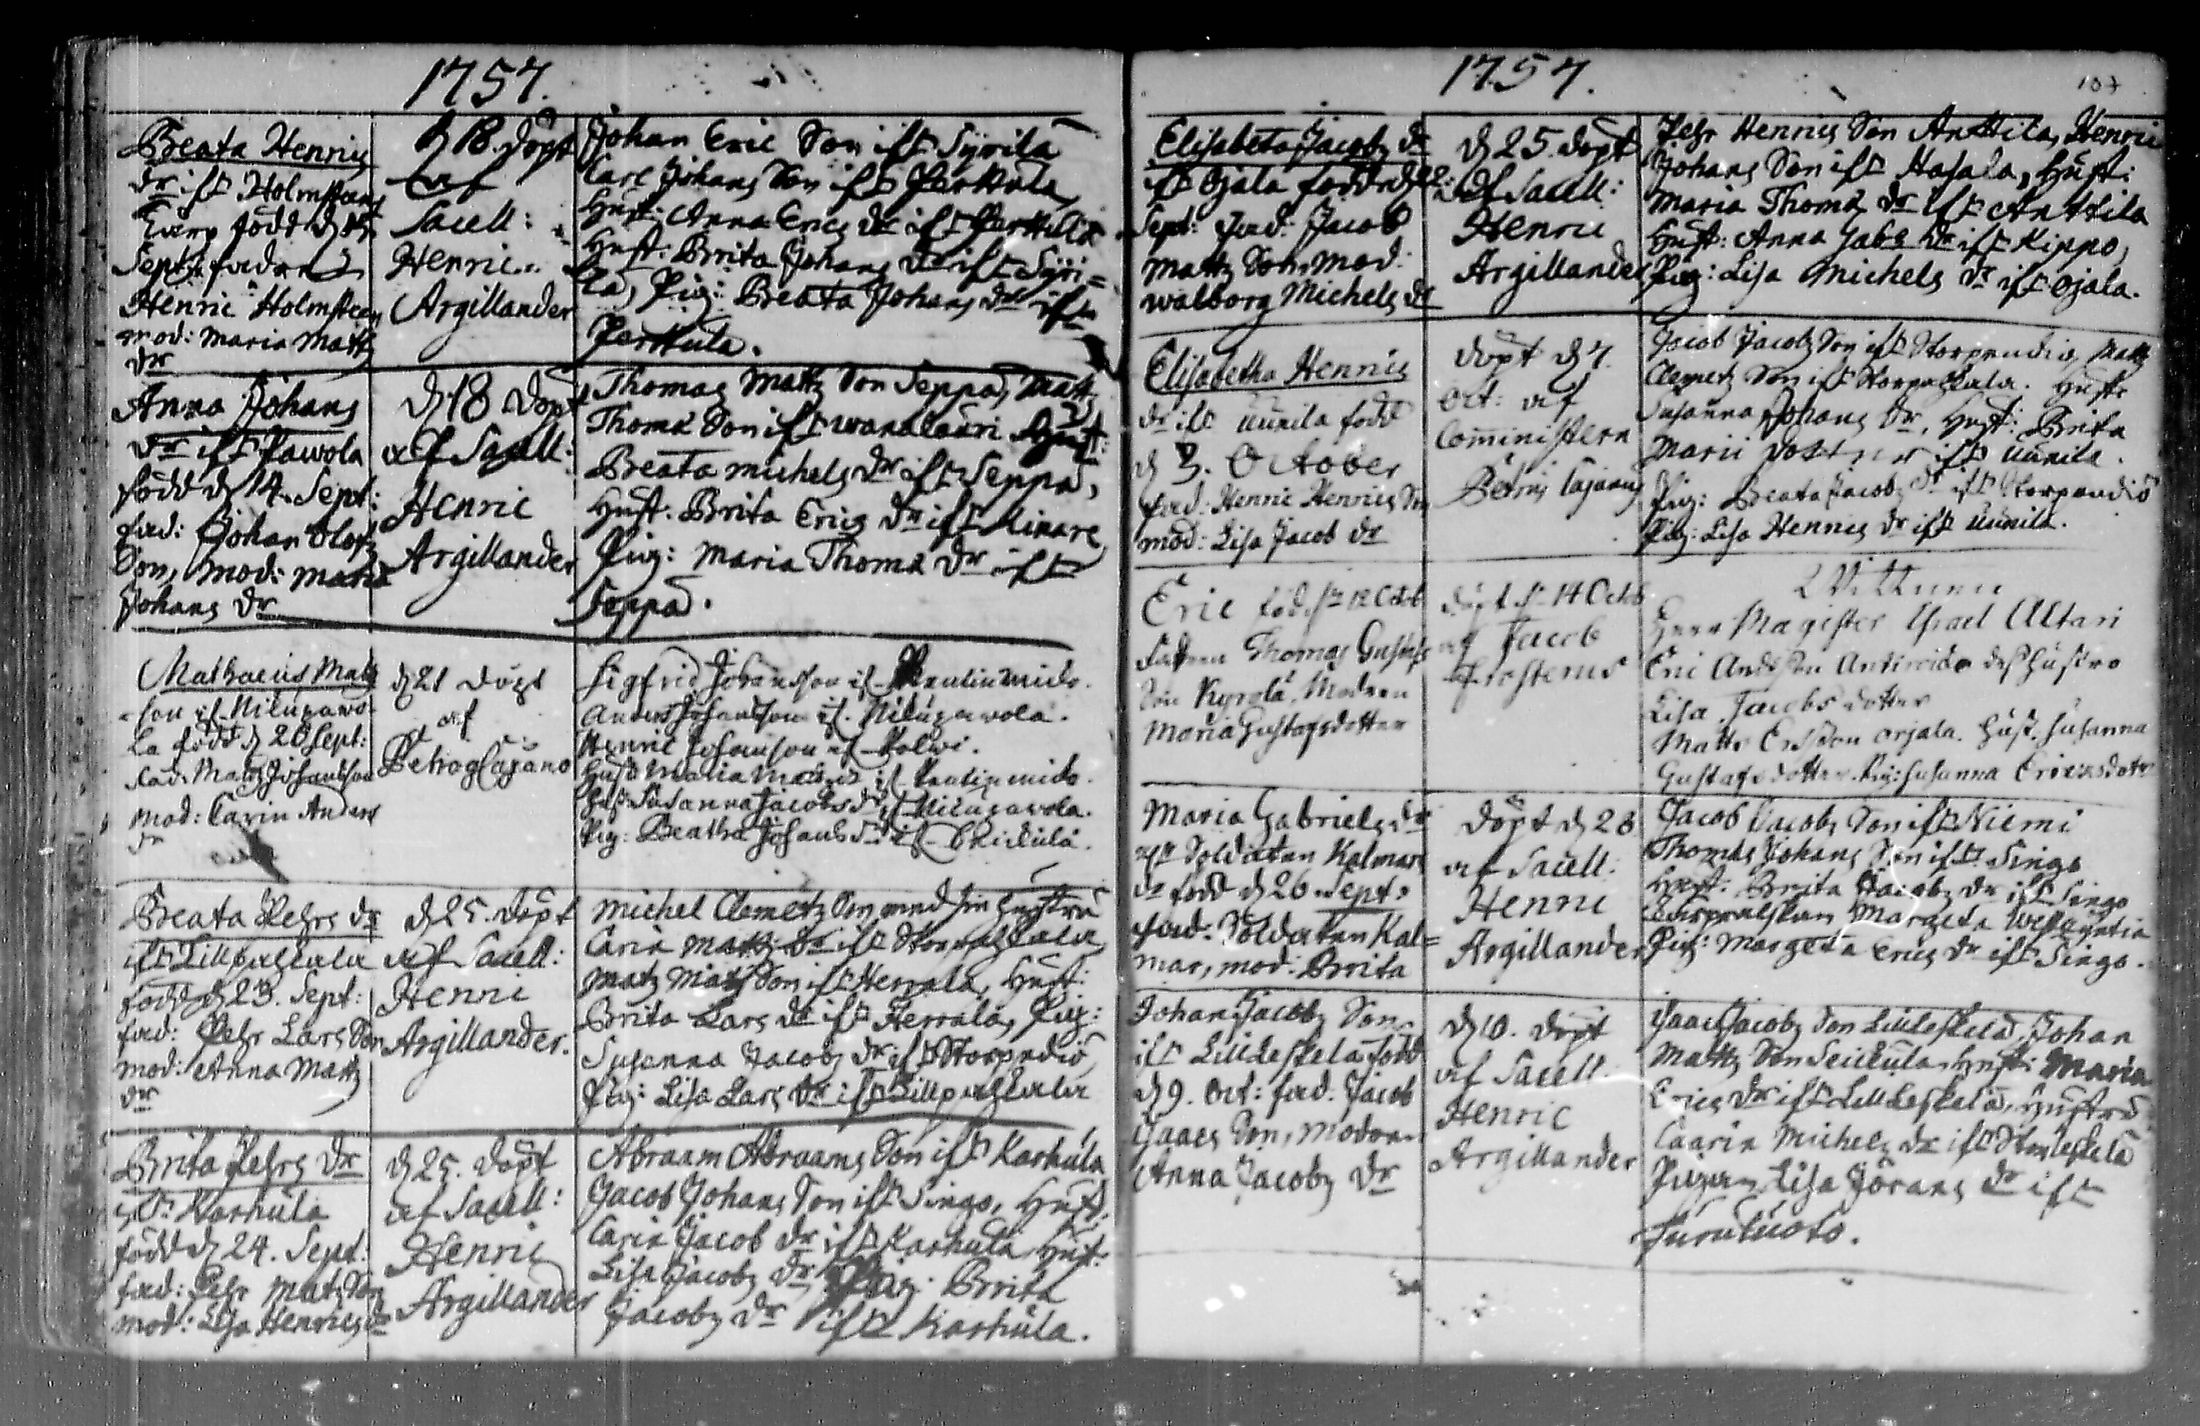 1757.
Beata Henrics
dr ifr Holmsteens
Torp född d
Sept: fadren
Henric Holmsteen
mod: Maria Matts
dr
d 18. döpt
af
Sacell:
Henric
Argillander
Johan Eric Son ifr Syrilä
Carl Johans Son ifr Perttula
Hust: Anna Erics dr ifr Perttula
Hust: Brita Johans dr ifr Syri=
lä, Pig: Beata Johans dr ifr
Perttula.
Anna Johans
dr ifr Pawola
född d 14. Sept:
fad: Johan Olofs
Son, mod: Maria
Johans dr
d 18 döpt
af Sacell:
Henric
Argillander
Thomas Matts Son Seppä, Matts
Thomæ Son ifr wanalauri Hust:
Beata Michels dr ifr Seppä,
Hust: Brita Erics dr ifr Kinare
Pig: Maria Thomæ dr ifr
Seppä.
Mathaeus Mats
son if
la född d 20 Sept:
fad: Mats Johansson
mod: Carin Anders
dr
d 21 döpt
af
Petro Cajano
Sigfrid Johansson if
Anders Johansson if.
Henric Johansson if
Hust Maria
Hust: Susanna Jacobs dr if
Pig: Beatha Johans dr if
Beata Pehrs dr
ifr Lillpaskala
född d 23. Sept:
fad: Pehr Lars Son
mod: Anna Matts
dr
d 25. döpt
af Sacell:
Henric
Argillander.
Michel Clemets Son med sin hustru
Carin Matts dr ifr
Mats Mats Son ifr Herrala, Hust:
Brita Lars dr ifr Herrala, Pig:
Susanna Jacobs dr ifr Storpendiö
Pig: Lisa Lars dr ifr Lillpaskala
Brita Pehrs dr
ifr Karhula
född d 24. Sept:
fad: Pehr Mats Son
mod: Lisa Henrics dr
d 25. döpt
af Sacell:
Henric
Argillander
Abraam Abraams Son ifr Karhula
Jacob Johans Son ifr Singo, Hust:
Carin Jacob dr ifr Karhula Hust:
Lisa Jacobs dr Pig: Brita
Jacobs dr ifr Karhula.
1757.
107
Elisabeta Jacobs dr
ifr Ojala född d 22
Sept: fad: Jacob
Matts Son, mod:
walborg Michels dr
d 25. döpt
af Sacell:
Henric
Argillander
Pehr Henrics Son Anttila, Henric
Johans Son ifr Hasala, Hust:
Maria Thomæ dr ifr Anttila
Hust: Anna Gabr dr ifr Kippo,
Pig: Lisa Michels dr ifr Ojala.
Elisabetha Henrics
dr ifr Uunila född
d 3. October
fad: Henric Henrics Son
mod: Lisa Jacob dr
döpt d 7.
Oct: af
Comministern
Petrus Cajanus
Jacob Jacobs Son ifr Storpendiö, Matts
Clemets Son ifr Storpaskala. Hust:
Susanna Johans dr, Hust: Brita
ifr Uunila.
Pig: Beata Jacobs dr ifr Storpendiö
Pig: Lisa Henrics dr ifr Uunila.
Eric föd d 12 Octob
Fadren Thomas Gustafs
Son Kyrolä, Modren
Maria Gustafsdotter
döpt d 14 Octob
af Jacob
Wittnen
Herr Magister Israel Altan
Eric Andersson dess Hustro
Lisa Jacobs dotter
Matts Ersson Orjala. Hust. Susanna
Gustafs dotter. Pig: Susanna Ericksdotr
Maria Gabriels dr
ifr Soldaten Kalmars
dr född d 26. Sept:
fad: Soldaten Kal=
mar, mod: Brita
döpt d 28
af Sacell:
Henric
Argillander
Jacob Jacobs Son ifr Niemi
Thomas Johans Son ifr Singo
Hust: Brita Jacobs dr ifr Singo
Corporalskan Margeta
Pig: Margeta Erics dr ifr Singo.
Johan Jacobs Son
ifr Lilleskelä född
d 9. Oct: fad: Jacob
Isaacs Son, Modren
Anna Jacobs dr
d 10. döpt
af Sacell.
Henric
Argillander
Isaac Jacobs Son Lilleskelä, Johan
Matts Son Seickula, Hust: Maria
Erics dr ifr Lilleskelä, Hustru
Caarin Michels dr ifr Storleskelä
Pigan Lisa Jörans dr ifr